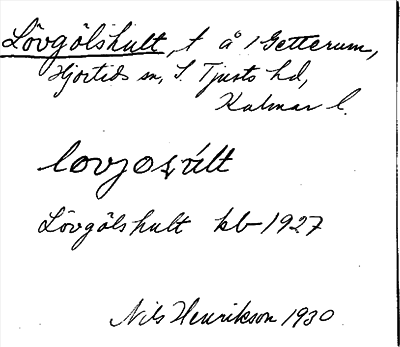 Lövgölshult, t å 1 Getterum,
Hjorteds sn, S. Tjusts hd,
Kalmar l.
lovjosult
Lövgölshult kb 1927
Nils Henrikson 1930